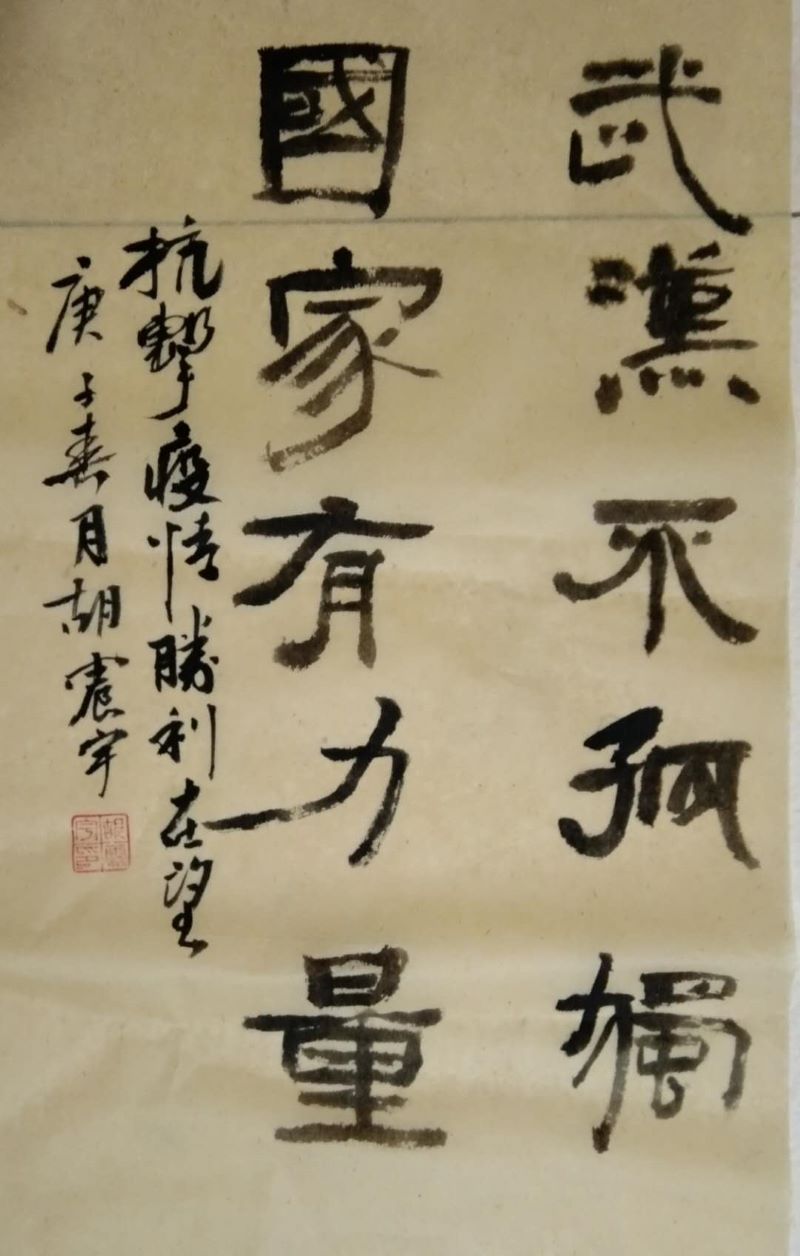 武漢不孤獨
國家有力量
抗擊疫情勝利在望
庚子春月胡震宇